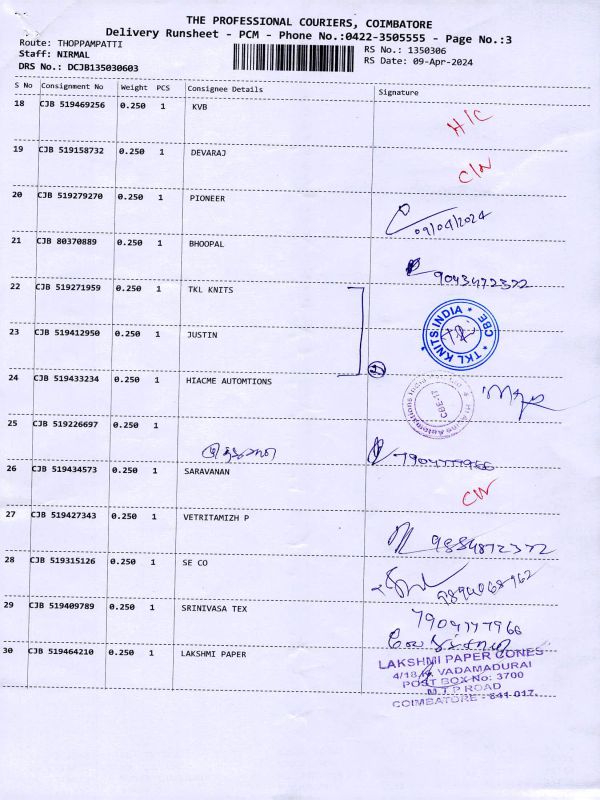 THE PROFESSIONAL COURIERS, COIMBATORE
Delivery Runsheet - PCM - Phone No.:0422-3505555 - Page No.:3
Route: THOPPAMPATTI
RS No.: 1350306
Staff: NIRMAL
RS Date: 09-Apr-2024
DRS No.: DCJB135030603
S No Consignment No Weight PCS Consignee Details Signature
18 CJB 519469256 0.250 1 KVB
H/C
19 CJB 519158732 0.250 1 DEVARAJ
C/N
20 CJB 519279270 0.250 1 PIONEER
09/04/2024
21 CJB 80370889 0.250 1 BHOOPAL
9043472372
22 CJB 519271959 0.250 1 TKL KNITS
TKL KNITS INDIA * CBE *
23 CJB 519412950 0.250 1 JUSTIN
24 CJB 519433234 0.250 1 HIACME AUTOMTIONS
CBE-17
25 CJB 519226697 0.250 1
7904777966
26 CJB 519434573 0.250 1 SARAVANAN
C/N
27 CJB 519427343 0.250 1 VETRITAMIZH P
9884872372
28 CJB 519315126 0.250 1 SE CO
9894068962
29 CJB 519409789 0.250 1 SRINIVASA TEX
7904777966
30 CJB 519464210 0.250 1 LAKSHMI PAPER
LAKSHMI PAPER CONES
4/18, VADAMADURAI
POST BOX No: 3700
M T P ROAD
COIMBATORE - 641 017.